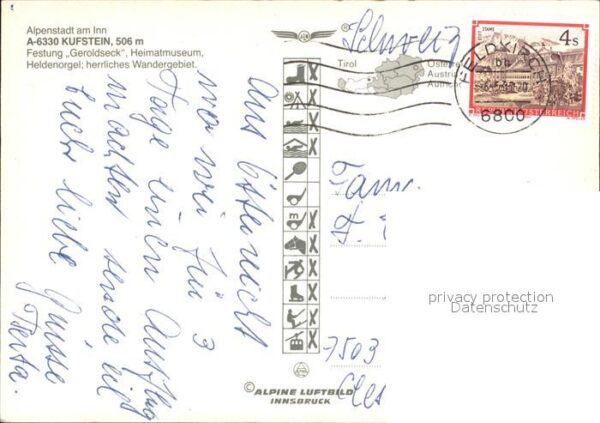 Alpenstadt am Inn
A-6330 KUFSTEIN, 506 m
Festung „Geroldseck", Heimatmuseum,
Heldenorgel; herrliches Wandergebiet.
Aus Österreich
wo wir für 3
Tage einen Ausflug
machten sende ich
Euch liebe Grüsse
Berta.
Schweiz
Tirol
Österreich
Austria
Autriche
FELDKIRCH
6800
4 S
STAMS
REPUBLIK ÖSTERREICH
Fam.
7503
privacy protection
Datenschutz
m
© ALPINE LUFTBILD
INNSBRUCK